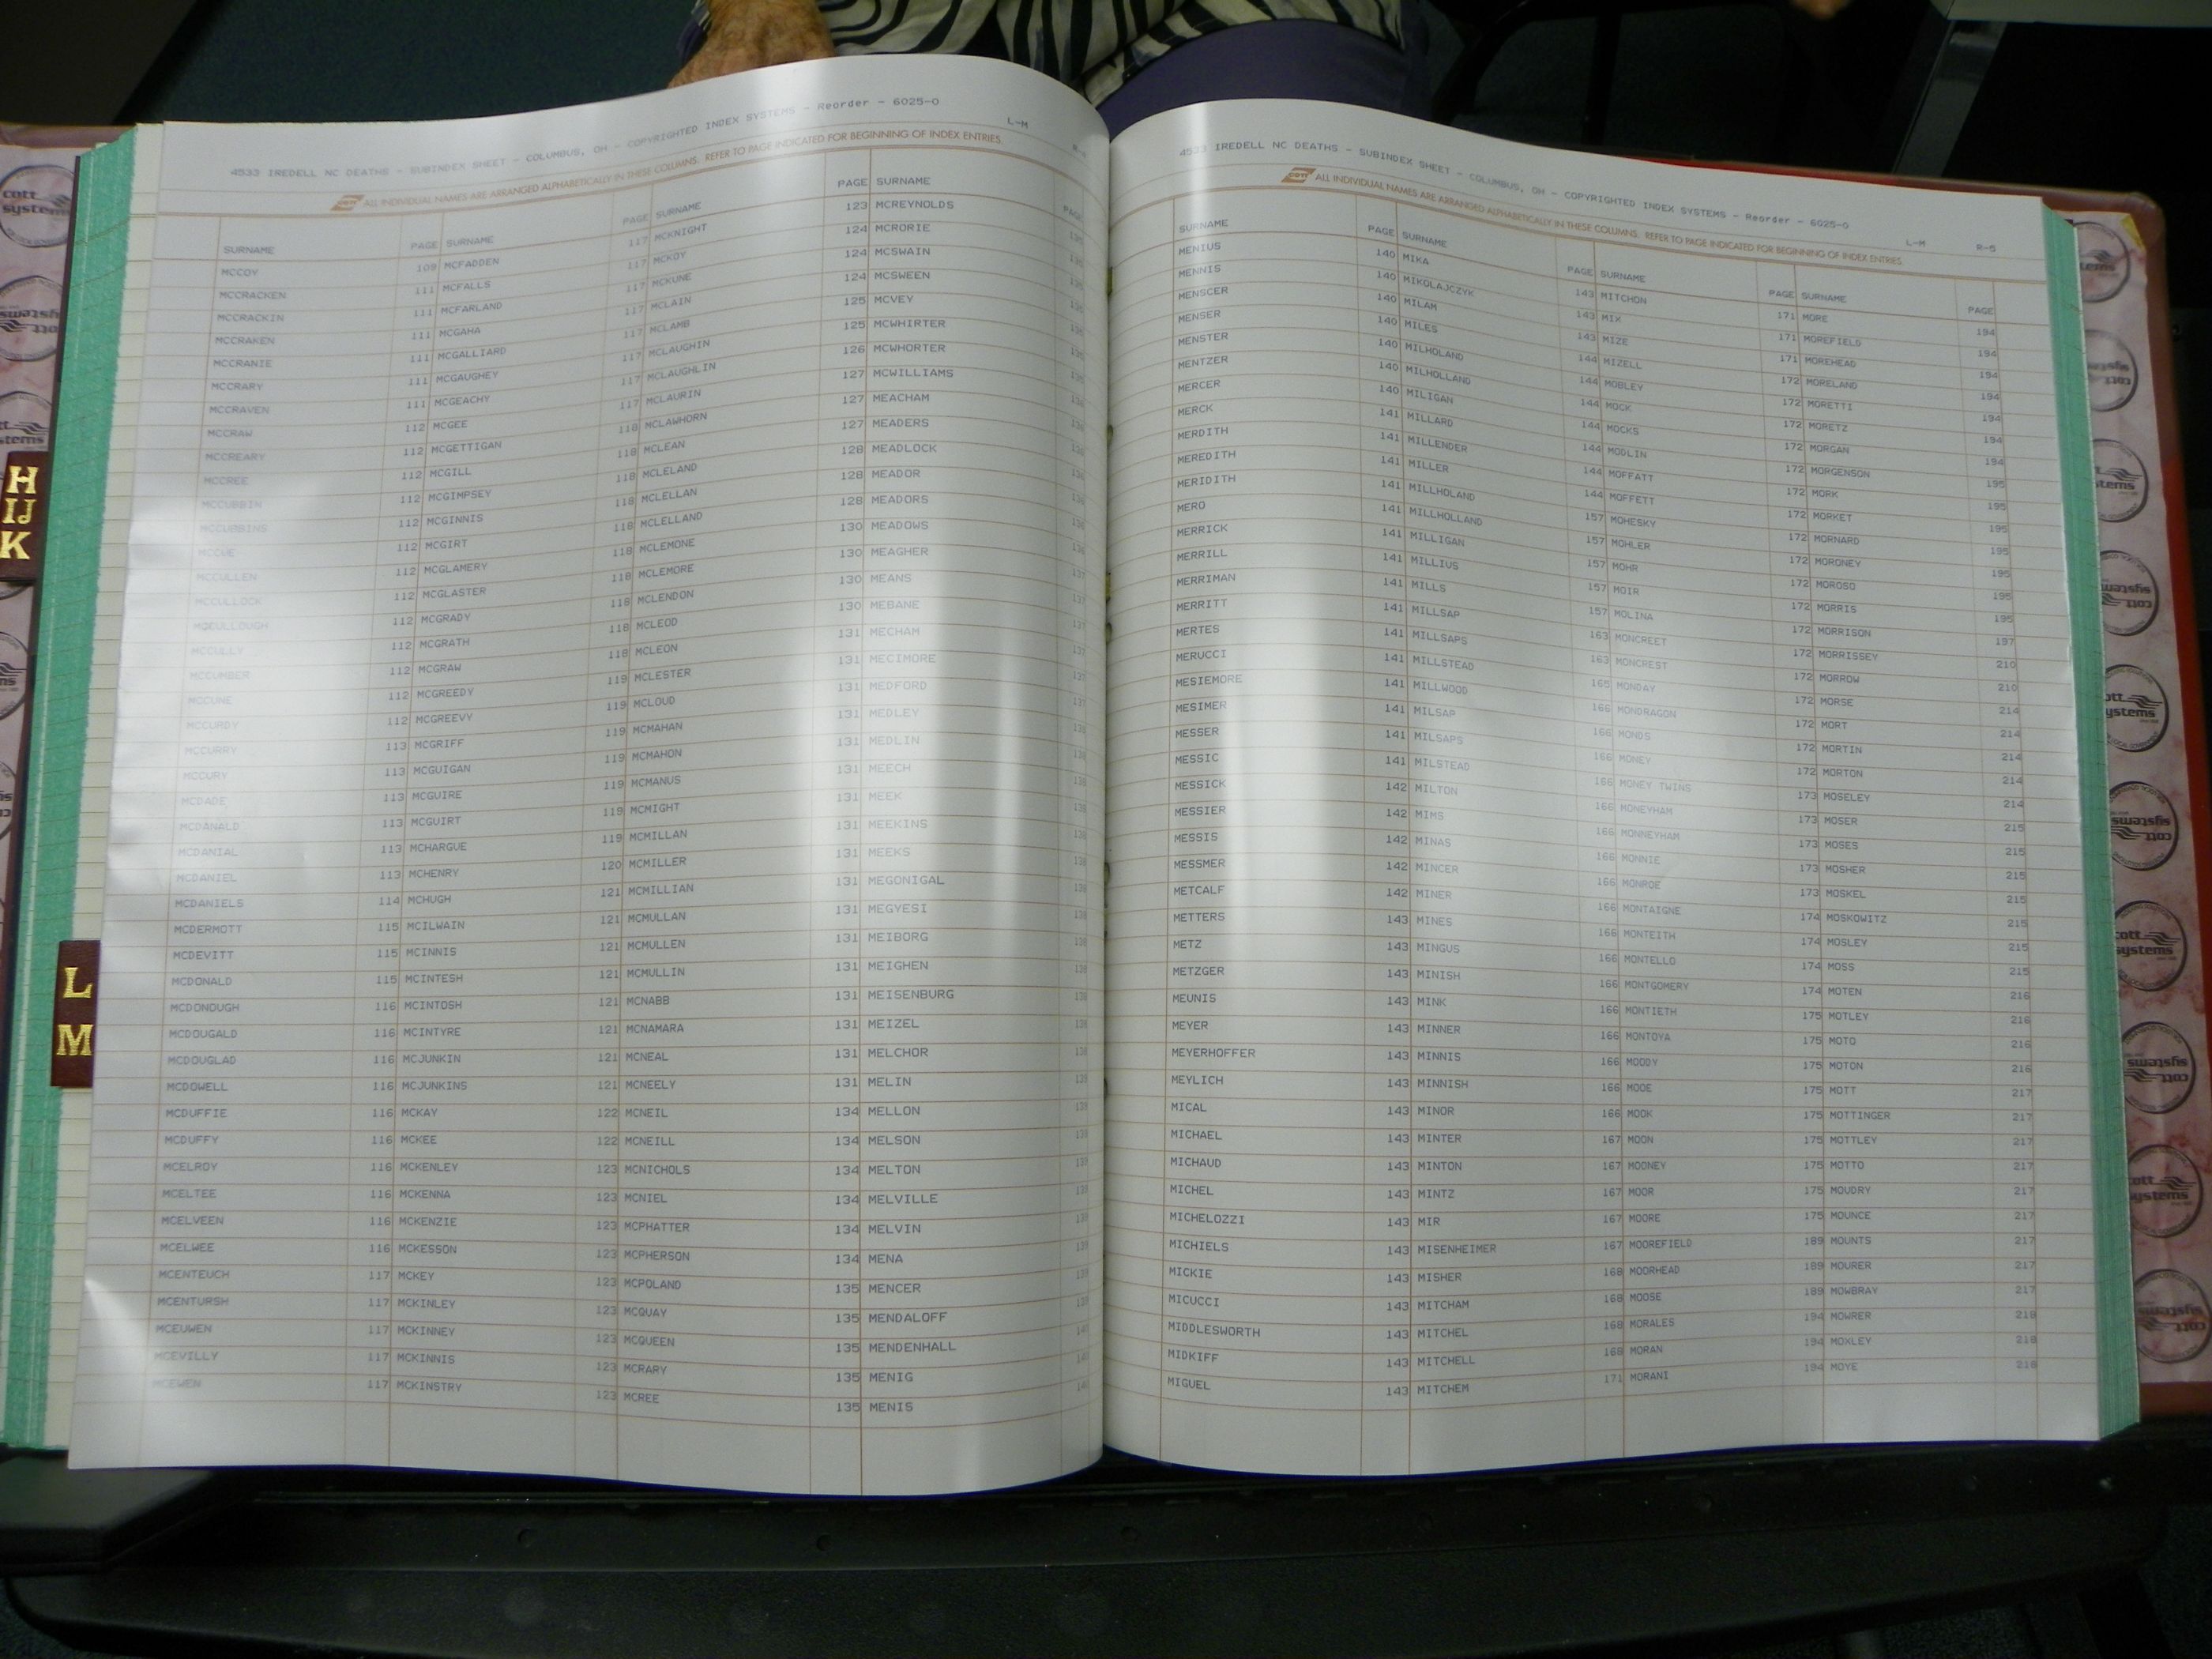 4533 IREDELL NC DEATHS - SUBINDEX SHEET - COLUMBUS, OH - COPYRIGHTED INDEX SYSTEMS - Reorder - 6025-0
L-M
COTT ALL INDIVIDUAL NAMES ARE ARRANGED ALPHABETICALLY IN THESE COLUMNS. REFER TO PAGE INDICATED FOR BEGINNING OF INDEX ENTRIES.
SURNAME PAGE
MCCOY 109
MCCRACKEN 111
MCCRACKIN 111
MCCRAKEN 111
MCCRANIE 111
MCCRARY 111
MCCRAVEN 111
MCCRAW 112
MCCREARY 112
MCCREE 112
MCCUBBIN 112
MCCUBBINS 112
MCCUE 112
MCCULLEN 112
MCCULLOCK 112
MCCULLOUGH 112
MCCULLY 112
MCCUMBER 112
MCCUNE 112
MCCURDY 112
MCCURRY 113
MCCURY 113
MCDADE 113
MCDANALD 113
MCDANIAL 113
MCDANIEL 113
MCDANIELS 114
MCDERMOTT 115
MCDEVITT 115
MCDONALD 115
MCDONOUGH 116
MCDOUGALD 116
MCDOUGLAD 116
MCDOWELL 116
MCDUFFIE 116
MCDUFFY 116
MCELROY 116
MCELTEE 116
MCELVEEN 116
MCELWEE 116
MCENTEUCH 117
MCENTURSH 117
MCEUWEN 117
MCEVILLY 117
MCEWEN 117
SURNAME PAGE
MCFADDEN 117
MCFALLS 117
MCFARLAND 117
MCGAHA 117
MCGALLIARD 117
MCGAUGHEY 117
MCGEACHY 117
MCGEE 117
MCGETTIGAN 118
MCGILL 118
MCGIMPSEY 118
MCGINNIS 118
MCGIRT 118
MCGLAMERY 118
MCGLASTER 118
MCGRADY 118
MCGRATH 118
MCGRAW 118
MCGREEDY 119
MCGREEVY 119
MCGRIFF 119
MCGUIGAN 119
MCGUIRE 119
MCGUIRT 119
MCHARGUE 119
MCHENRY 120
MCHUGH 121
MCILWAIN 121
MCINNIS 121
MCINTESH 121
MCINTOSH 121
MCINTYRE 121
MCJUNKIN 121
MCJUNKINS 121
MCKAY 122
MCKEE 122
MCKENLEY 123
MCKENNA 123
MCKENZIE 123
MCKESSON 123
MCKEY 123
MCKINLEY 123
MCKINNEY 123
MCKINNIS 123
MCKINSTRY 123
SURNAME PAGE
MCKNIGHT 123
MCKOY 124
MCKUNE 124
MCLAIN 124
MCLAMB 125
MCLAUGHIN 125
MCLAUGHLIN 126
MCLAURIN 127
MCLAWHORN 127
MCLEAN 127
MCLELAND 128
MCLELLAN 128
MCLELLAND 128
MCLEMONE 130
MCLEMORE 130
MCLENDON 130
MCLEOD 130
MCLEON 131
MCLESTER 131
MCLOUD 131
MCMAHAN 131
MCMAHON 131
MCMANUS 131
MCMIGHT 131
MCMILLAN 131
MCMILLER 131
MCMILLIAN 131
MCMULLAN 131
MCMULLEN 131
MCMULLIN 131
MCNABB 131
MCNAMARA 131
MCNEAL 131
MCNEELY 131
MCNEIL 134
MCNEILL 134
MCNICHOLS 134
MCNIEL 134
MCPHATTER 134
MCPHERSON 134
MCPOLAND 135
MCQUAY 135
MCQUEEN 135
MCRARY 135
MCREE 135
SURNAME
MCREYNOLDS
MCRORIE
MCSWAIN
MCSWEEN
MCVEY
MCWHIRTER
MCWHORTER
MCWILLIAMS
MEACHAM
MEADERS
MEADLOCK
MEADOR
MEADORS
MEADOWS
MEAGHER
MEANS
MEBANE
MECHAM
MECIMORE
MEDFORD
MEDLEY
MEDLIN
MEECH
MEEK
MEEKINS
MEEKS
MEGONIGAL
MEGYESI
MEIBORG
MEIGHEN
MEISENBURG
MEIZEL
MELCHOR
MELIN
MELLON
MELSON
MELTON
MELVILLE
MELVIN
MENA
MENCER
MENDALOFF
MENDENHALL
MENIG
MENIS
4533 IREDELL NC DEATHS - SUBINDEX SHEET - COLUMBUS, OH - COPYRIGHTED INDEX SYSTEMS - Reorder - 6025-0
L-M R-5
COTT ALL INDIVIDUAL NAMES ARE ARRANGED ALPHABETICALLY IN THESE COLUMNS. REFER TO PAGE INDICATED FOR BEGINNING OF INDEX ENTRIES.
SURNAME PAGE
MENIUS 140
MENNIS 140
MENSCER 140
MENSER 140
MENSTER 140
MENTZER 140
MERCER 140
MERCK 141
MERDITH 141
MEREDITH 141
MERIDITH 141
MERO 141
MERRICK 141
MERRILL 141
MERRIMAN 141
MERRITT 141
MERTES 141
MERUCCI 141
MESIEMORE 141
MESIMER 141
MESSER 141
MESSIC 141
MESSICK 142
MESSIER 142
MESSIS 142
MESSMER 142
METCALF 142
METTERS 143
METZ 143
METZGER 143
MEUNIS 143
MEYER 143
MEYERHOFFER 143
MEYLICH 143
MICAL 143
MICHAEL 143
MICHAUD 143
MICHEL 143
MICHELOZZI 143
MICHIELS 143
MICKIE 143
MICUCCI 143
MIDDLESWORTH 143
MIDKIFF 143
MIGUEL 143
SURNAME PAGE
MIKA 143
MIKOLAJCZYK 143
MILAM 143
MILES 144
MILHOLAND 144
MILHOLLAND 144
MILIGAN 144
MILLARD 144
MILLENDER 144
MILLER 144
MILLHOLAND 157
MILLHOLLAND 157
MILLIGAN 157
MILLIUS 157
MILLS 157
MILLSAP 163
MILLSAPS 163
MILLSTEAD 165
MILLWOOD 166
MILSAP 166
MILSAPS 166
MILSTEAD 166
MILTON 166
MIMS 166
MINAS 166
MINCER 166
MINER 166
MINES 166
MINGUS 166
MINISH 166
MINK 166
MINNER 166
MINNIS 166
MINNISH 166
MINOR 166
MINTER 167
MINTON 167
MINTZ 167
MIR 167
MISENHEIMER 167
MISHER 168
MITCHAM 168
MITCHEL 168
MITCHELL 168
MITCHEM 171
SURNAME PAGE
MITCHON 171
MIX 171
MIZE 171
MIZELL 172
MOBLEY 172
MOCK 172
MOCKS 172
MODLIN 172
MOFFATT 172
MOFFETT 172
MOHESKY 172
MOHLER 172
MOHR 172
MOIR 172
MOLINA 172
MONCREET 172
MONCREST 172
MONDAY 172
MONDRAGON 172
MONDS 172
MONEY 172
MONEY TWINS 173
MONEYHAM 173
MONNEYHAM 173
MONNIE 173
MONROE 173
MONTAIGNE 174
MONTEITH 174
MONTELLO 174
MONTGOMERY 174
MONTIETH 175
MONTOYA 175
MOODY 175
MOOE 175
MOOK 175
MOON 175
MOONEY 175
MOOR 175
MOORE 175
MOOREFIELD 189
MOORHEAD 189
MOOSE 189
MORALES 194
MORAN 194
MORANI 194
SURNAME PAGE
MORE 194
MOREFIELD 194
MOREHEAD 194
MORELAND 194
MORETTI 194
MORETZ 194
MORGAN 194
MORGENSON 195
MORK 195
MORKET 195
MORNARD 195
MORONEY 195
MOROSO 195
MORRIS 195
MORRISON 197
MORRISSEY 210
MORROW 210
MORSE 214
MORT 214
MORTIN 214
MORTON 214
MOSELEY 214
MOSER 215
MOSES 215
MOSHER 215
MOSKEL 215
MOSKOWITZ 215
MOSLEY 215
MOSS 215
MOTEN 216
MOTLEY 216
MOTO 216
MOTON 216
MOTT 217
MOTTINGER 217
MOTTLEY 217
MOTTO 217
MOUDRY 217
MOUNCE 217
MOUNTS 217
MOURER 217
MOWBRAY 217
MOWRER 218
MOXLEY 218
MOYE 218
H
IJ
K
L
M
cott systems